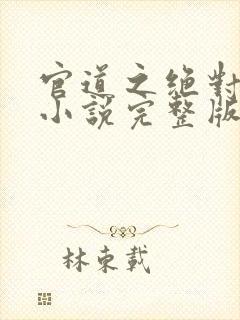 官道之絶對
小說完整版
林東載